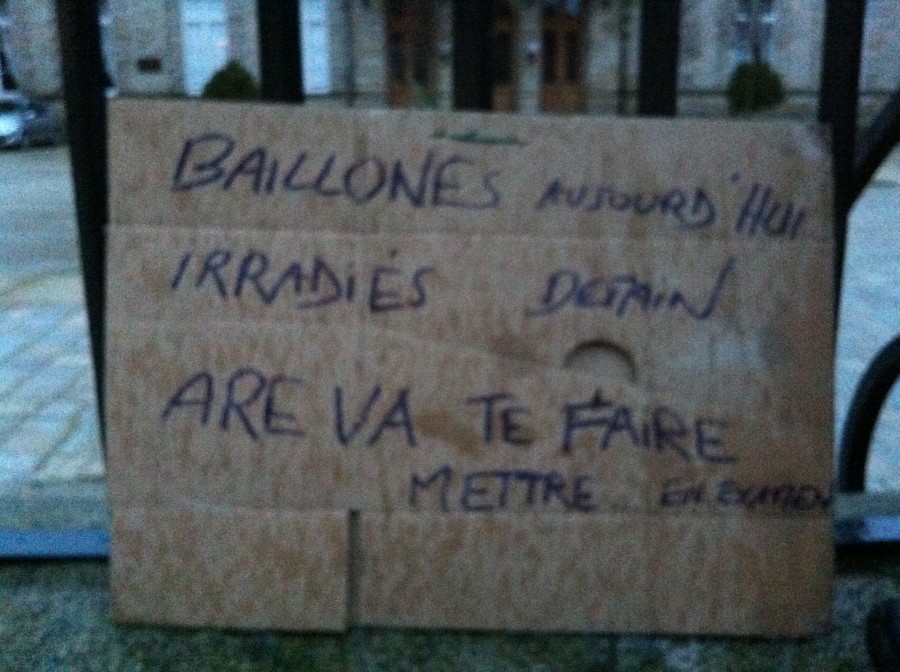 BAILLONES AUJOURD'HUI
IRRADIÉS DEMAIN
AREVA TE FAIRE
METTRE .. EN EXAMEN